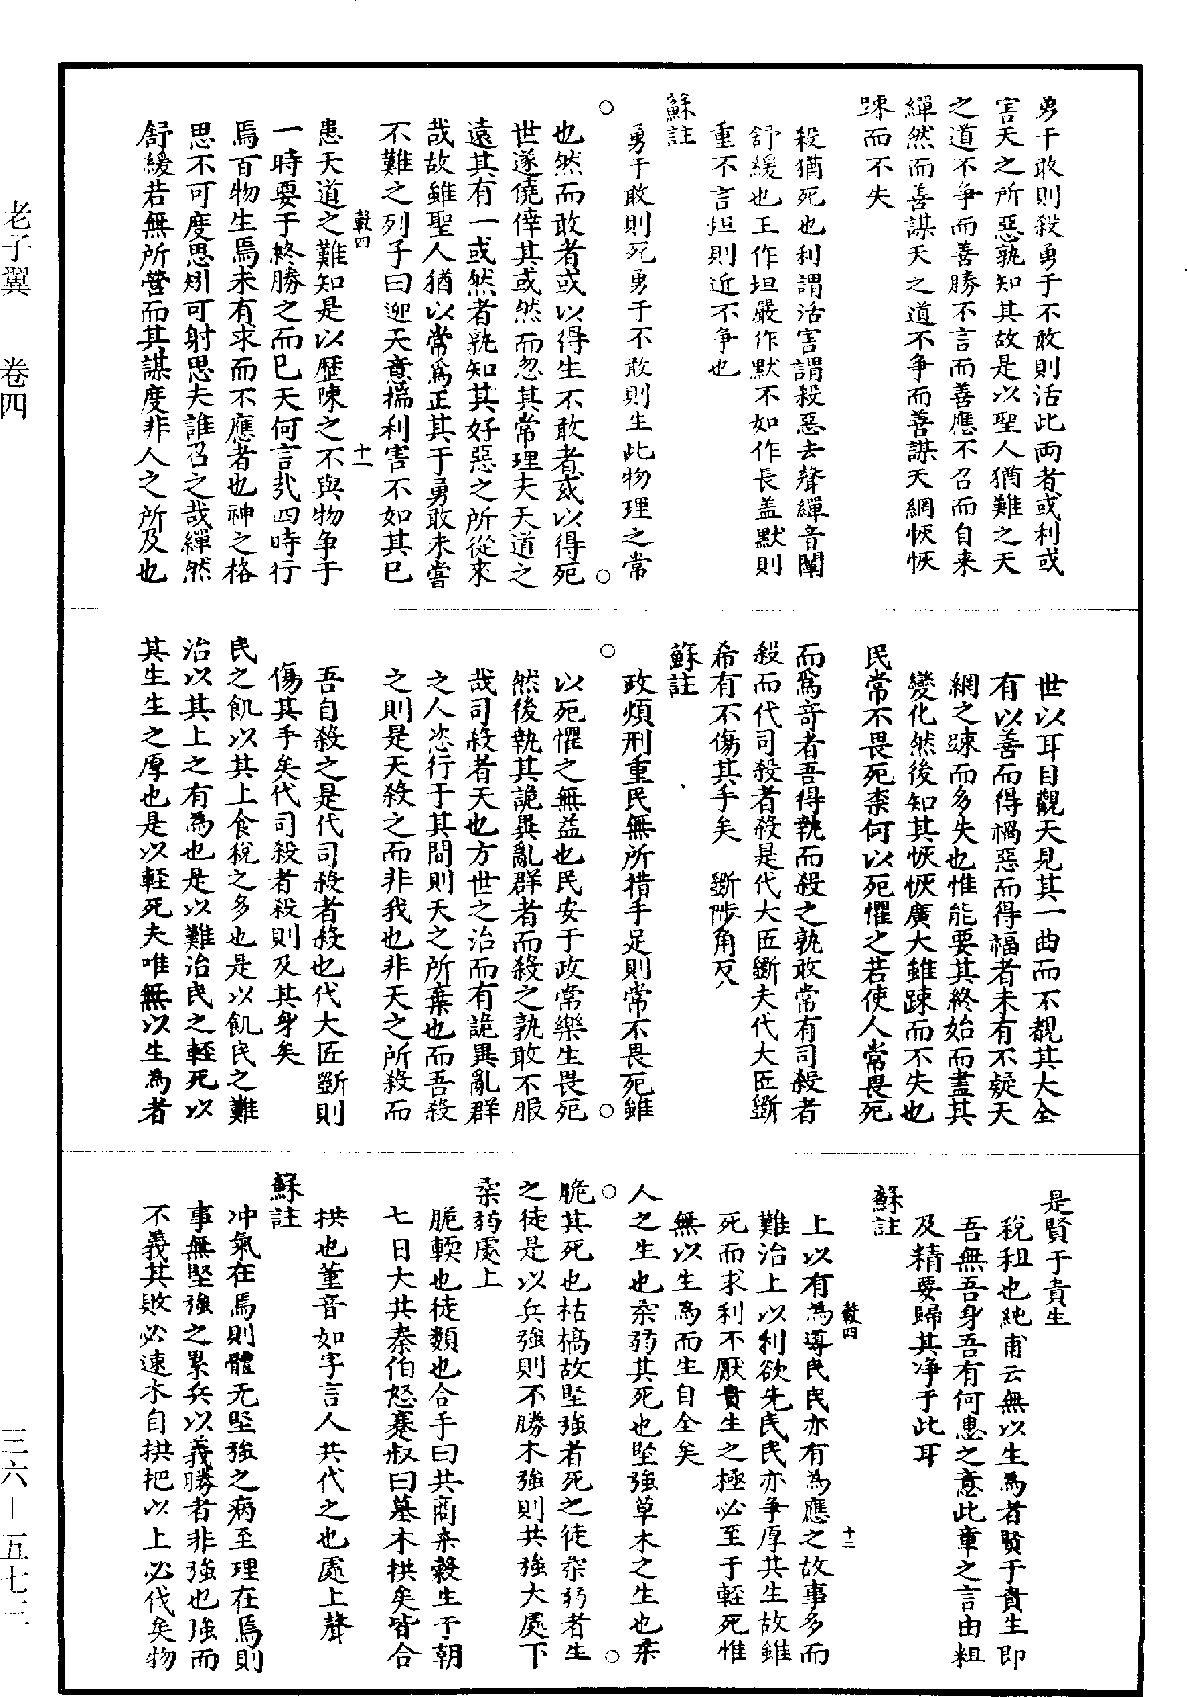 勇于敢則殺勇于不敢則活此兩者或利或
害天之所惡孰知其故是以聖人猶難之天
之道不争而善勝不言而善應不召而自来
繟然而善謀天之道不争而善謀天網恢恢
踈而不失
殺猶死也利謂活害謂殺惡去聲繟音闡
舒緩也王作坦嚴作默不如作長盖默則
重不言坦則近不争也
蘇註
勇于敢則死勇于不敢則生此物理之常
也然而敢者或以得生不敢者或以得死
世遂僥倖其或然而忽其常理夫天道之
遠其有一或然者孰知其好惡之所從來
哉故雖聖人猶以常為正其于勇敢未嘗
不難之列子曰迎天意揣利害不如其已
患天道之難知是以歷陳之不與物争于
一時要于終勝之而已天何言哉四時行
焉百物生焉未有求而不應者也神之格
思不可度思矧可射思夫誰召之哉繟然
舒緩若無所營而其謀度非人之所及也
世以耳目觀天見其一曲而不覩其大全
有以善而得禍惡而得福者未有不疑天
網之踈而多失也惟能要其終始而盡其
變化然後知其恢恢廣大雖踈而不失也
民常不畏死柰何以死懼之若使人常畏死
而為奇者吾得執而殺之孰敢常有司殺者
殺而代司殺者殺是代大匠斲夫代大匠斲
希有不傷其手矣　斲陟角反
蘇註
政煩刑重民無所措手足則常不畏死雖
以死懼之無益也民安于政常樂生畏死
然後執其詭異亂群者而殺之孰敢不服
哉司殺者天也方世之治而有詭異亂群
之人恣行于其間則天之所棄也而吾殺
之則是天殺之而非我也非天之所殺而
吾自殺之是代司殺者殺也代大匠斲則
傷其手矣代司殺者殺則及其身矣
民之飢以其上食稅之多也是以飢民之難
治以其上之有為也是以難治民之輕死以
其生生之厚也是以輕死夫唯無以生為者
是賢于貴生
稅租也純甫云無以生為者賢于貴生即
吾無吾身吾有何患之意此章之言由粗
及精要歸其净于此耳
蘇註
上以有為導民民亦有為應之故事多而
難治上以利欲先民民亦争厚其生故雖
死而求利不厭貴生之極必至于輕死惟
無以生為而生自全矣
人之生也柔弱其死也堅強草木之生也柔
脆其死也枯槁故堅強者死之徒柔弱者生
之徒是以兵強則不勝木強則共強大處下
柔弱處上
脆輭也徒類也合手曰共商桑榖生于朝
七日大共秦伯怒蹇叔曰墓木拱矣皆合
拱也董音如字言人共代之也處上聲
蘇註
冲氣在焉則體无堅強之病至理在焉則
事無堅強之累兵以義勝者非強也強而
不義其敗必速木自拱把以上必伐矣物
老子翼　卷四
三六—五七三
轂四
十一
轂四
十二